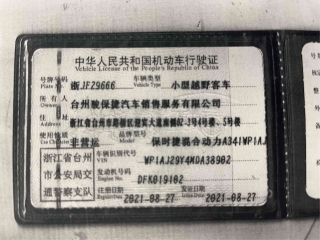 中华人民共和国机动车行驶证
Vehicle License of the People's Republic of China
号牌号码 浙JF29666 车辆类型 小型越野客车
Plate No. Vehicle Type
所有人 台州骏保捷汽车销售服务有限公司
Owner
住址 浙江省台州市路桥区迎宾大道 3号4号楼、5号楼
Address
使用性质 非营运 品牌型号 保时捷混合动力A341WP1AJ
Use Character Model
浙江省台州市公安局交通警察支队
车辆识别代号 WP1AJ29Y4MDA38902
VIN
发动机号码 DFK019102
Engine No.
注册日期 2021-08-27 发证日期 2021-08-27
Register Date Issue Date